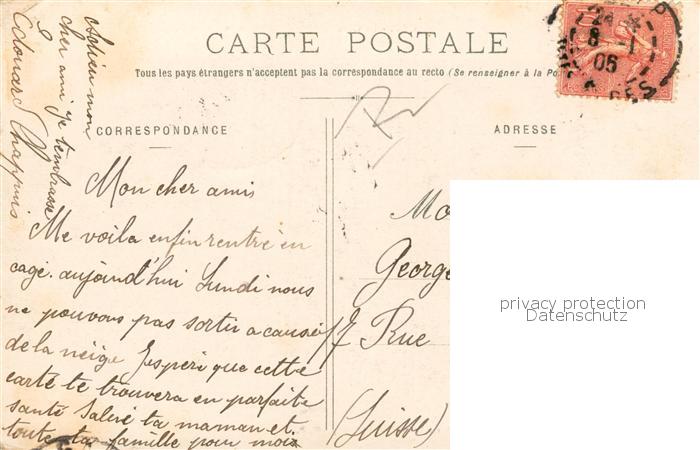 CARTE POSTALE
Tous les pays étrangers n'acceptent pas la correspondance au recto (Se renseigner à la Po
CORRESPONDANCE
ADRESSE
Mon cher amis
Me voila enfin rentré en
cage. aujourd'hui Lundi nous
ne pouvons pas sortir a cause
de la neige Jesperè que cette
carte te trouvera en parfaite
santé Saluè ta maman et
toute ta famille pour moi
Adieu mon
cher ami je tembrasse
Edouard Chappuis
Mo
George
17 Rue
(Suisse)
24
8 -1
05
privacy protection
Datenschutz